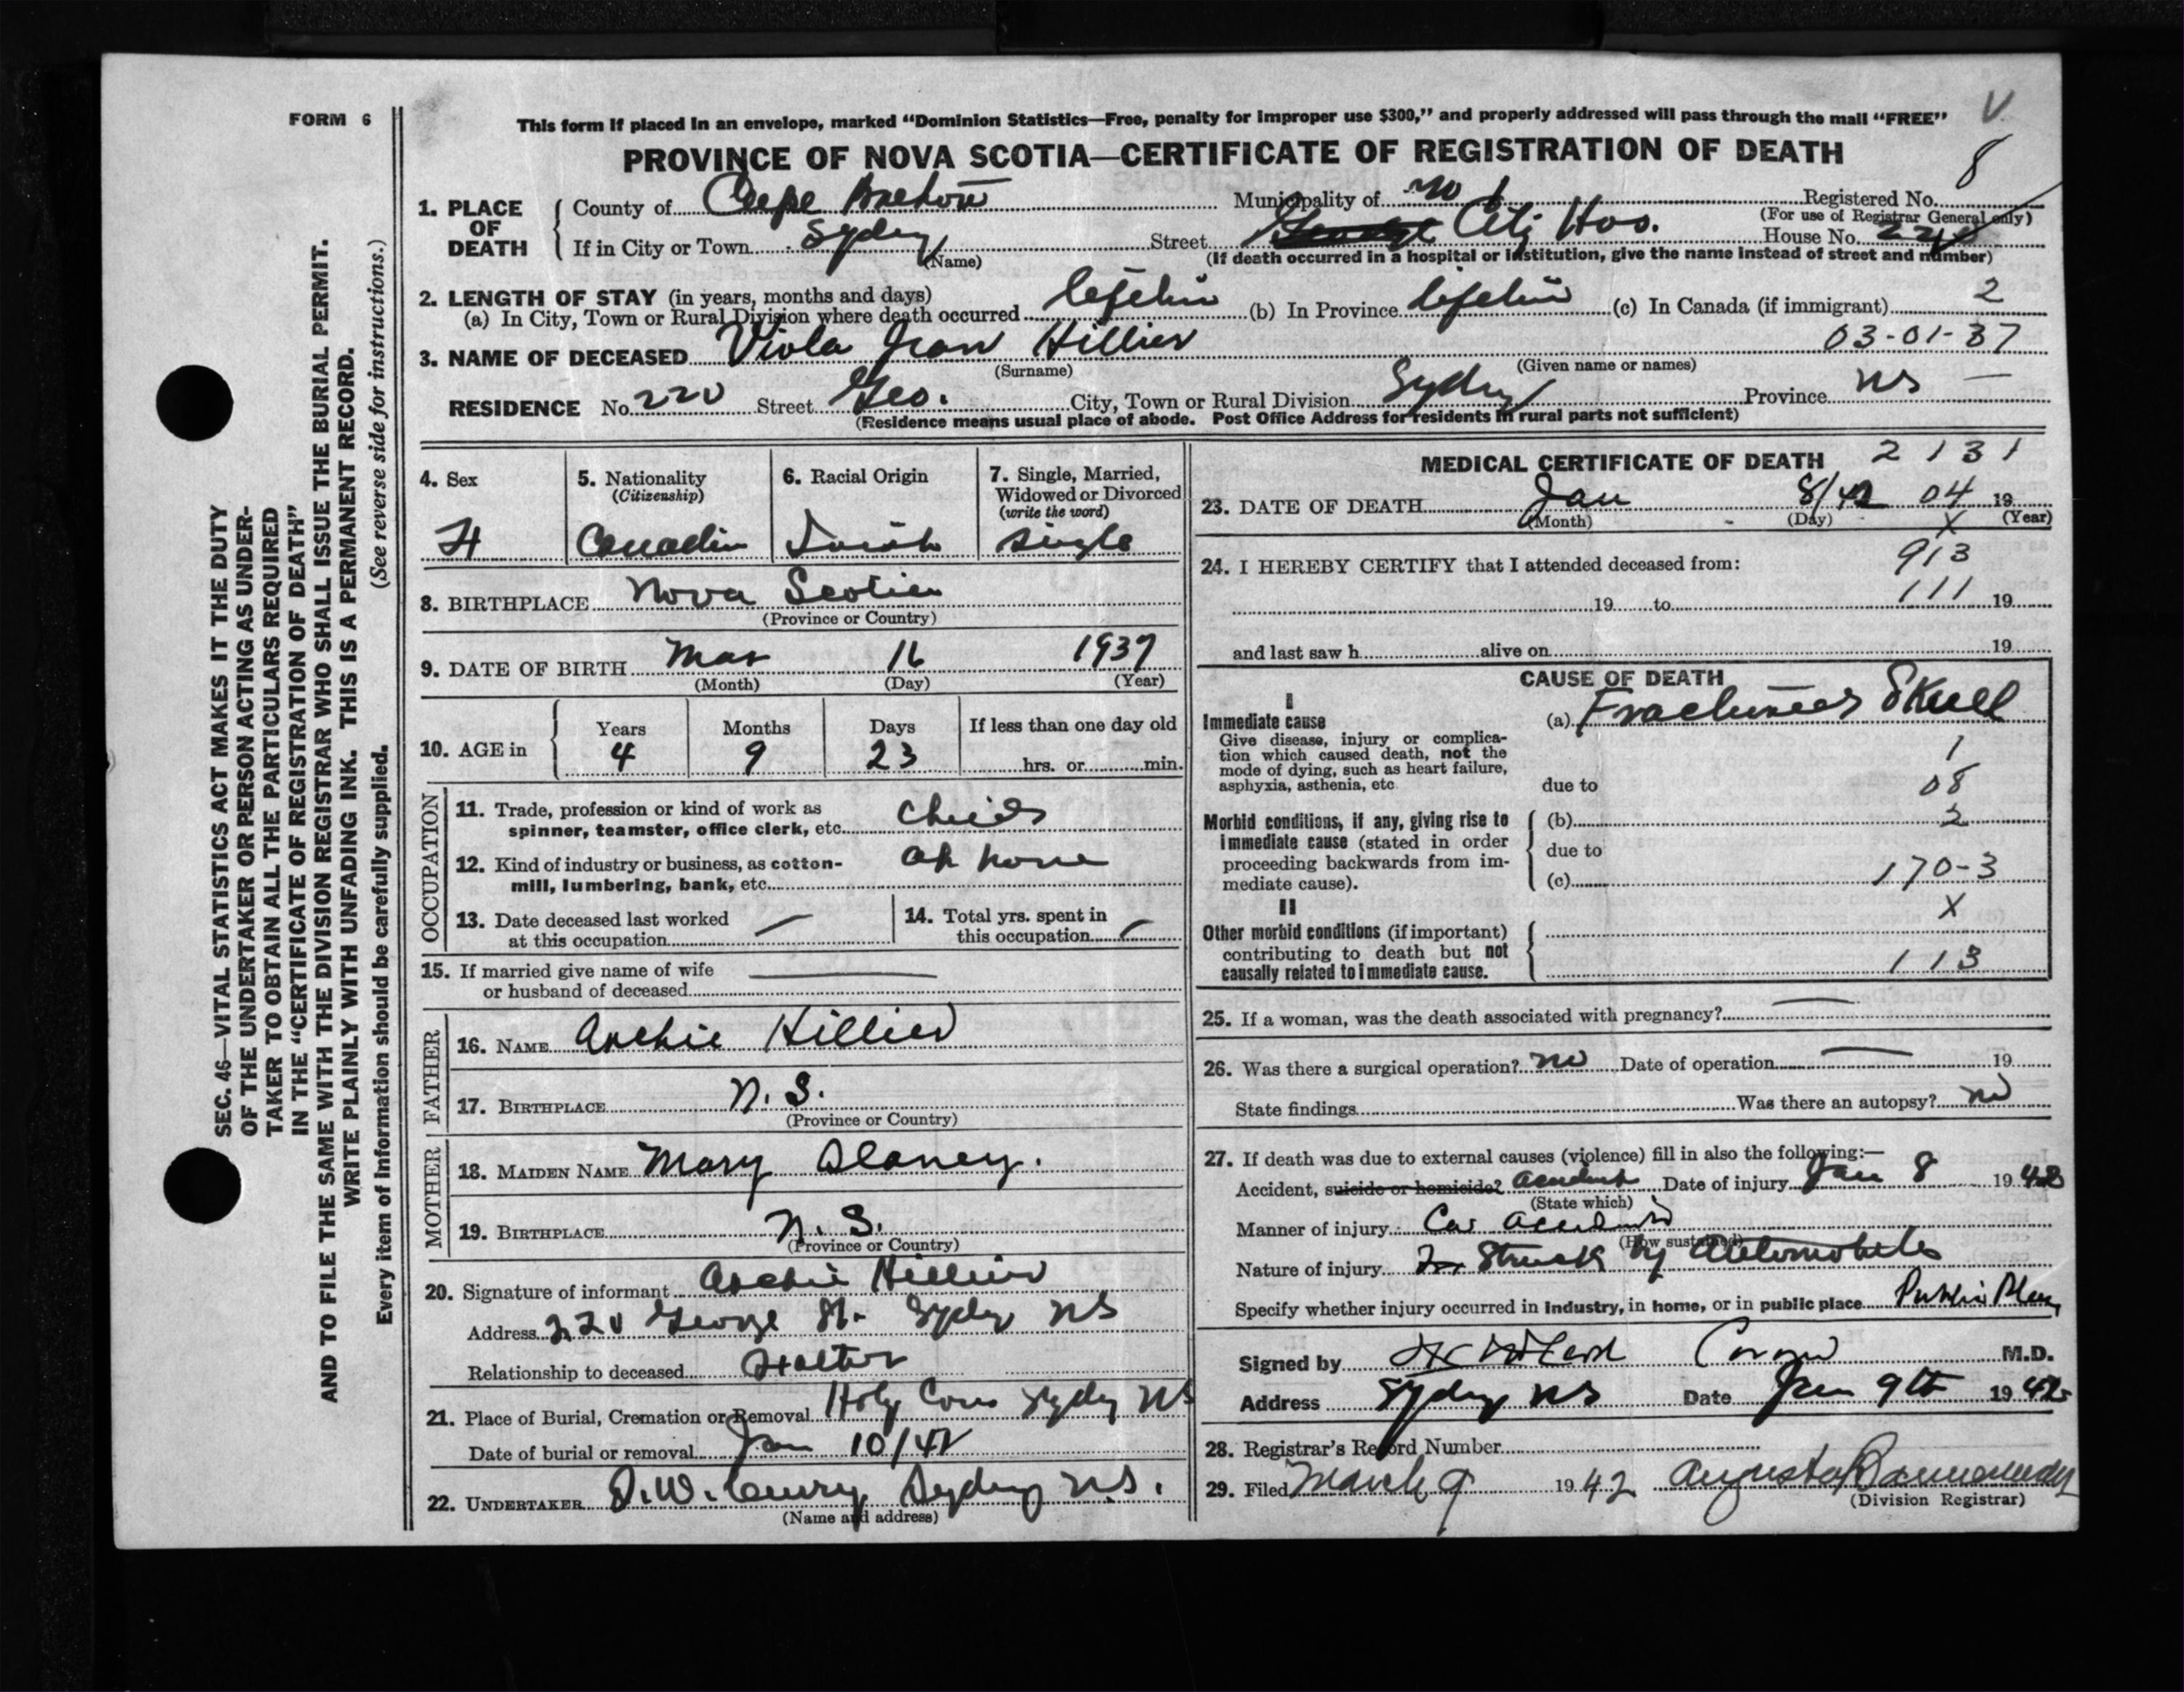 FORM 6
This form if placed in an envelope, marked “Dominion Statistics—Free, penalty for improper use $300,” and properly addressed will pass through the mail “FREE”
V
PROVINCE OF NOVA SCOTIA—CERTIFICATE OF REGISTRATION OF DEATH
8
1. PLACE OF DEATH
County of Cape Breton Municipality of Registered No.
(For use of Registrar General only)
If in City or Town Sydney Street City Hos. House No. 220
(Name) (If death occurred in a hospital or institution, give the name instead of street and number)
2. LENGTH OF STAY (in years, months and days)
(a) In City, Town or Rural Division where death occurred lifetime (b) In Province lifetime (c) In Canada (if immigrant) 2
3. NAME OF DECEASED Viola Jean Hillier 03-01-37
(Surname) (Given name or names)
RESIDENCE No. 220 Street Geo. City, Town or Rural Division Sydney Province NS —
(Residence means usual place of abode. Post Office Address for residents in rural parts not sufficient)
4. Sex
F
5. Nationality
(Citizenship)
Canadian
6. Racial Origin
7. Single, Married, Widowed or Divorced
(write the word)
single
8. BIRTHPLACE Nova Scotia
(Province or Country)
9. DATE OF BIRTH Mar 16 1937
(Month) (Day) (Year)
10. AGE in
Years Months Days If less than one day old
4 9 23 hrs. or min.
OCCUPATION
11. Trade, profession or kind of work as
spinner, teamster, office clerk, etc. child
12. Kind of industry or business, as cotton-
mill, lumbering, bank, etc. at home
13. Date deceased last worked
at this occupation —
14. Total yrs. spent in
this occupation —
15. If married give name of wife
or husband of deceased —
FATHER
16. NAME Archie Hillier
17. BIRTHPLACE N. S.
(Province or Country)
MOTHER
18. MAIDEN NAME Mary Delaney.
19. BIRTHPLACE N. S.
(Province or Country)
20. Signature of informant Archie Hillier
Address 220 George St. Sydney NS
Relationship to deceased Father
21. Place of Burial, Cremation or Removal Holy Cross Sydney NS
Date of burial or removal Jan 10/42
22. UNDERTAKER D.W. Curry Sydney N.S.
(Name and address)
MEDICAL CERTIFICATE OF DEATH 2131
23. DATE OF DEATH Jan 8/42 04 19
(Month) (Day) X (Year)
24. I HEREBY CERTIFY that I attended deceased from: 913
19 to 111 19
and last saw h alive on 19
CAUSE OF DEATH
I
Immediate cause
Give disease, injury or complica-
tion which caused death, not the
mode of dying, such as heart failure,
asphyxia, asthenia, etc
(a) Fractured Skull
1
due to 08
Morbid conditions, if any, giving rise to
immediate cause (stated in order
proceeding backwards from im-
mediate cause).
(b) 2
due to
(c) 170-3
II
X
Other morbid conditions (if important)
contributing to death but not
causally related to immediate cause.
113
25. If a woman, was the death associated with pregnancy? —
26. Was there a surgical operation? no Date of operation — 19
State findings Was there an autopsy? no
27. If death was due to external causes (violence) fill in also the following:—
Accident, suicide or homicide? accident Date of injury Jan 8 1942
(State which)
Manner of injury Car accident
(How sustained)
Nature of injury Struck by automobile
Specify whether injury occurred in industry, in home, or in public place Public Place
Signed by Coroner M.D.
Address Sydney NS Date Jan 9th 1942
28. Registrar's Record Number
29. Filed March 9 1942 Augusta
(Division Registrar)
SEC. 46—VITAL STATISTICS ACT MAKES IT THE DUTY
OF THE UNDERTAKER OR PERSON ACTING AS UNDER-
TAKER TO OBTAIN ALL THE PARTICULARS REQUIRED
IN THE “CERTIFICATE OF REGISTRATION OF DEATH”
AND TO FILE THE SAME WITH THE DIVISION REGISTRAR WHO SHALL ISSUE THE BURIAL PERMIT.
WRITE PLAINLY WITH UNFADING INK. THIS IS A PERMANENT RECORD.
Every item of information should be carefully supplied. (See reverse side for instructions.)